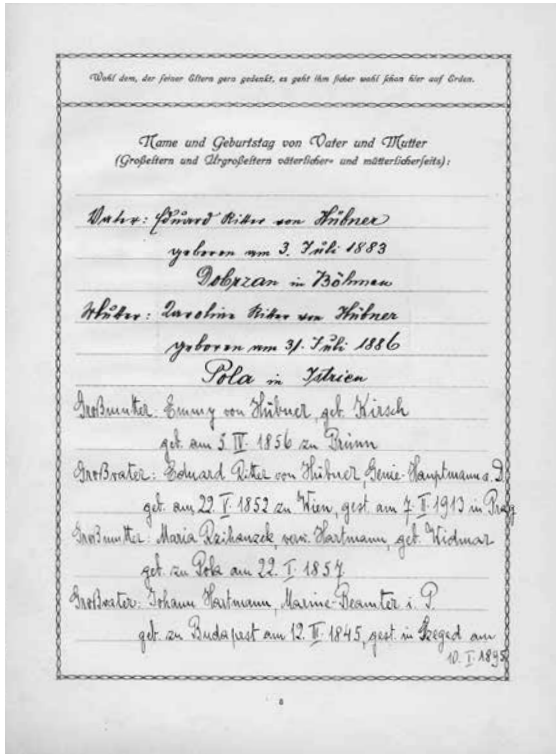 Wohl dem, der seiner Eltern gern gedenkt, es geht ihm sicher wohl schon hier auf Erden.
Name und Geburtstag von Vater und Mutter
(Großeltern und Urgroßeltern väterlicher- und mütterlicherseits):
Vater: Eduard Ritter von Hübner
geboren am 3. Juli 1883
Dobrzan in Böhmen
Mutter: Karoline Ritter von Hübner
geboren am 31. Juli 1886
Pola in Istrien
Großmutter: Emmy von Hübner, geb. Kirsch
geb. am 3. IV. 1856 zu Brünn
Großvater: Eduard Ritter von Hübner, Genie-Hauptmann a. D.
geb. am 22. V. 1852 zu Wien, gest. am 7. II. 1913 in Prag
Großmutter: Maria Rzihanzek, verw. Hartmann, geb. Widmar
geb. zu Pola am 22. I. 1857
Großvater: Johann Hartmann, Marine-Beamter i. P.
geb. zu Budapest am 12. III. 1845, gest. in Szeged am
10. I. 1895
8